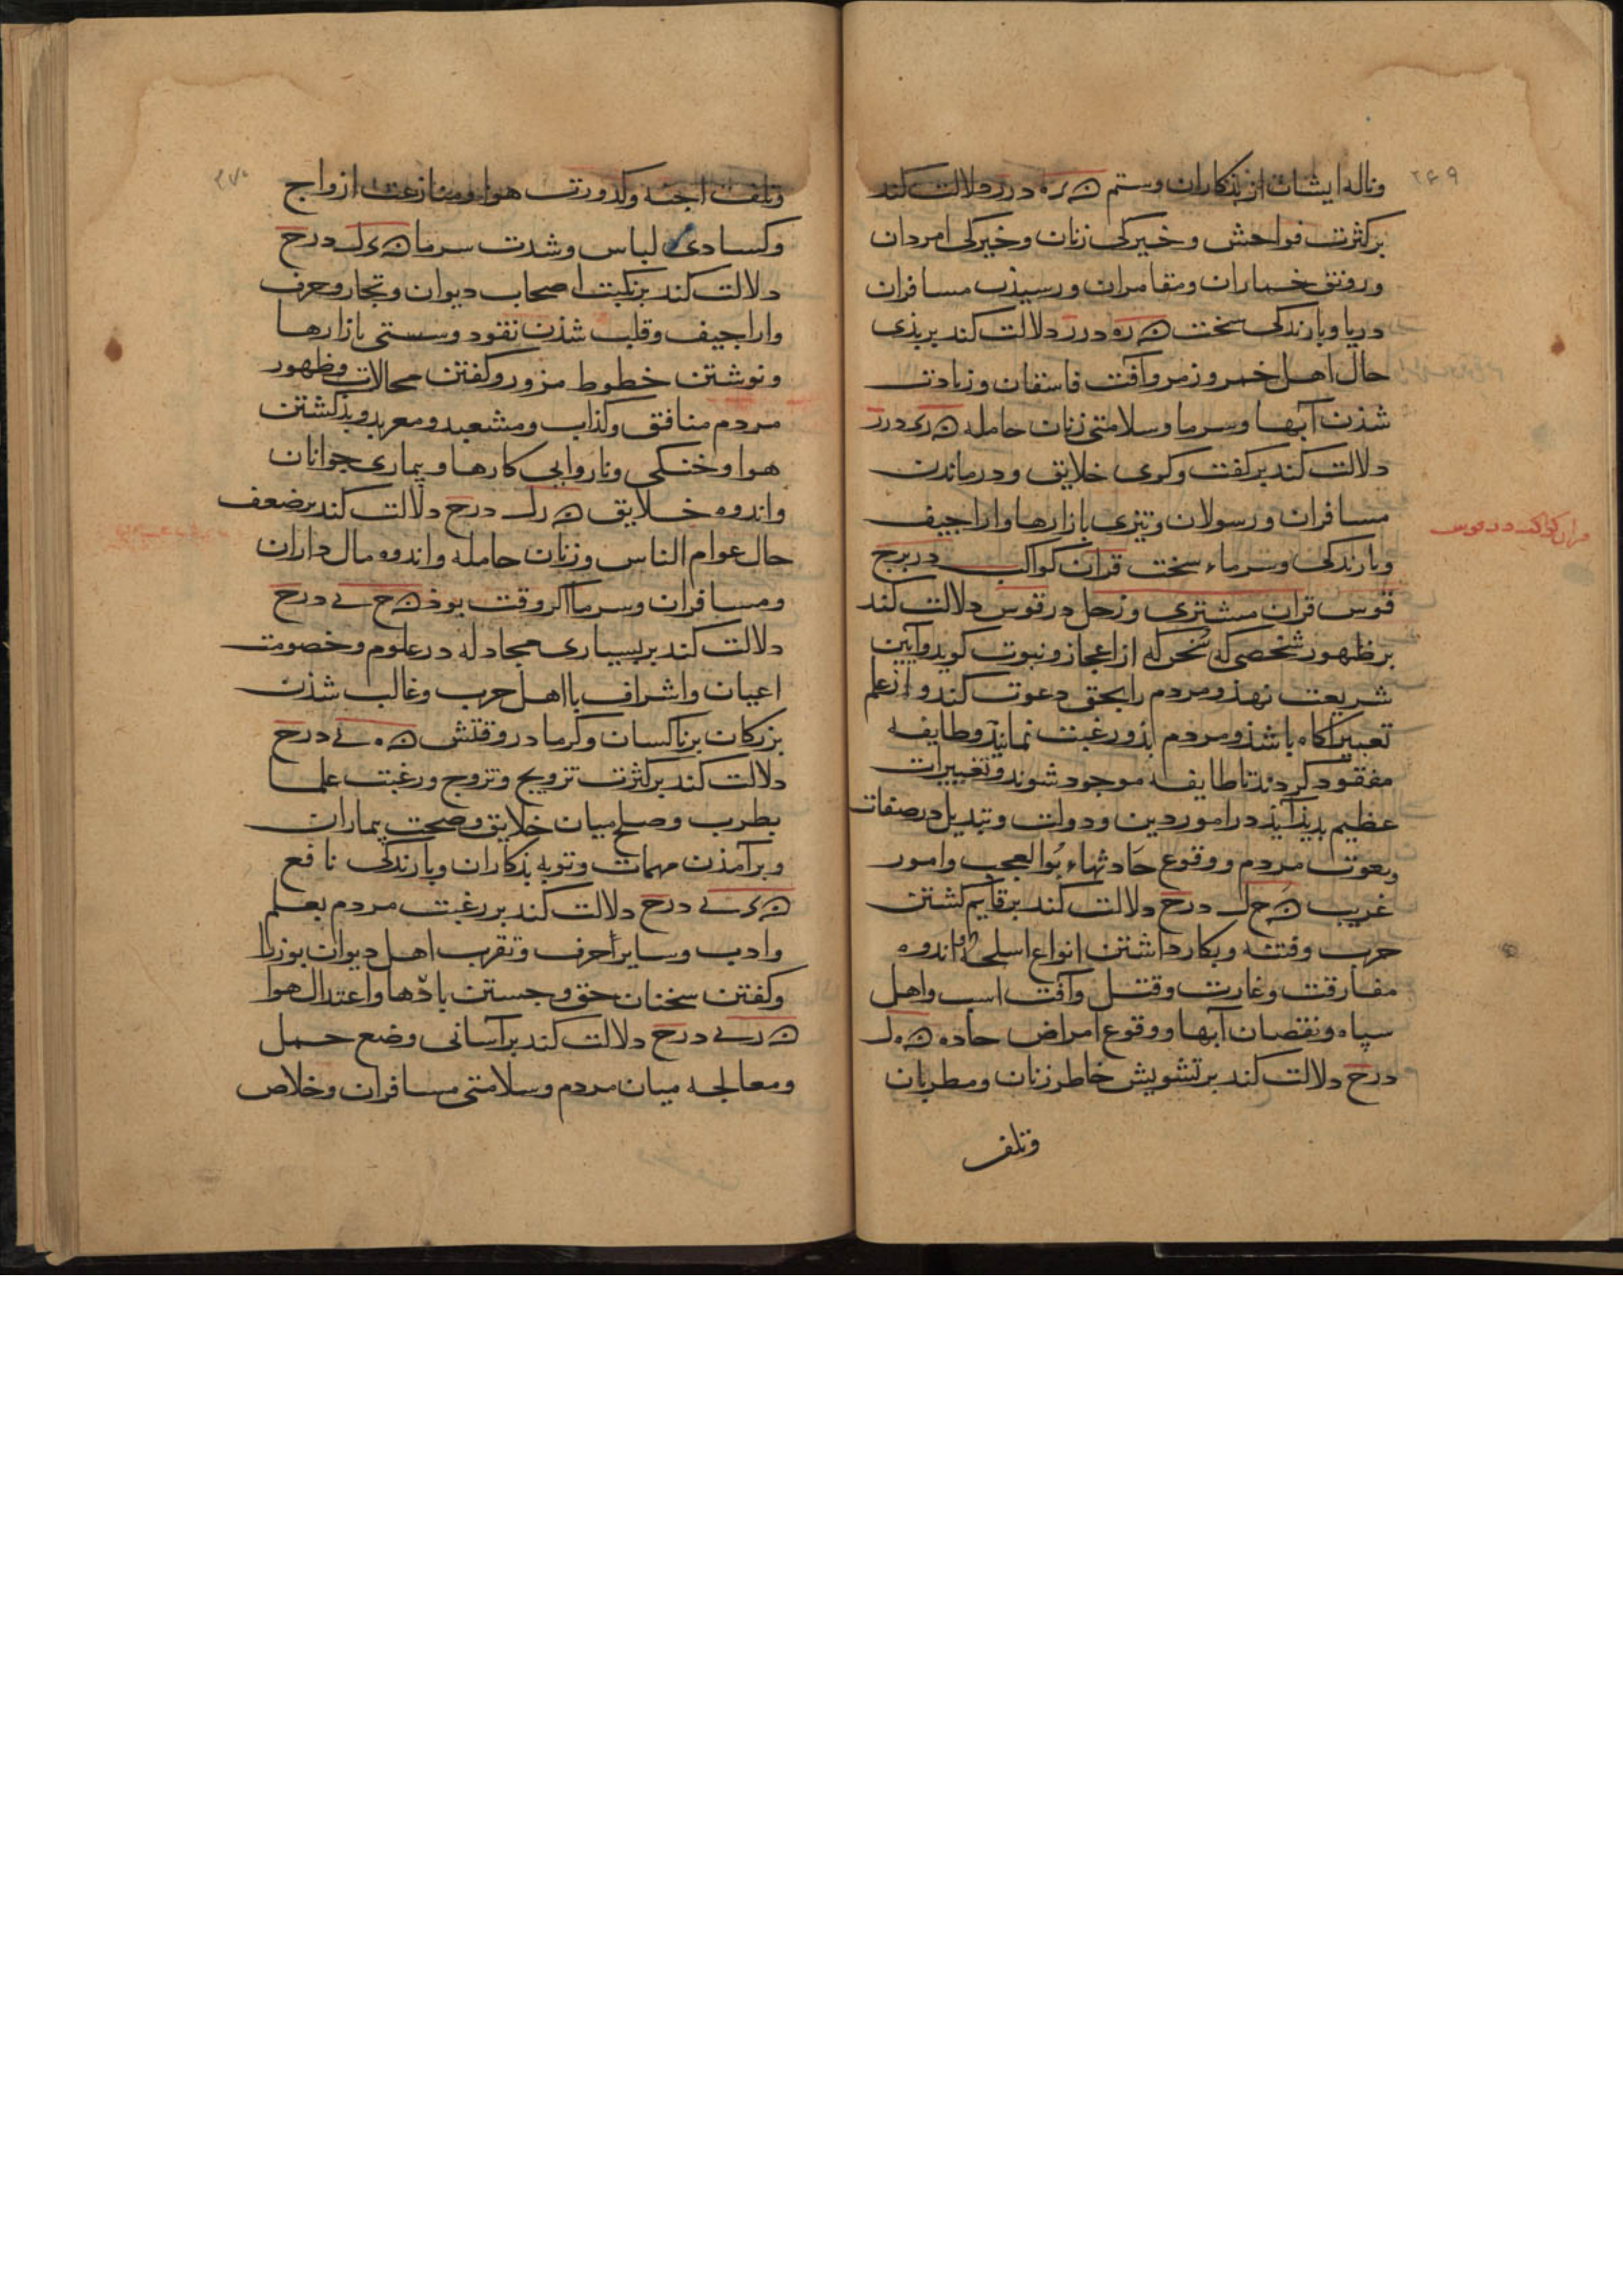 ۲۶۹
وناله ایشان از بذکاران وستم ن ر ه درر دلالت کند
بر کثرت فواحش وخیرکی زنان وخیرکی امردان
ورونق خماران ومقامران ورسیذن مسافران
دریا وبارندکی سخت ن ره درر دلالت کند بر بذی
حال اهل خمر وزمر وآفت فاسقان وزیادت
شذن آبها وسرما وسلامتی زنان حامله ن ری درر
دلالت کند بر کفت وکوی خلایق ودرماندن
مسافران ورسولان وتیزی بازارها واراجیف
وبارندکی وسرماء سخت قران کواکب در برج
قران کواکب در قوس
قوس قران مشتری وزحل در قوس دلالت کند
بر ظهور شخصی که سخن که از اعجاز ونبوت کوید وآیین
شریعت نهذ ومردم را بحق دعوت کند واز علم
تعبیر آکاه باشذ ومردم بذو رغبت نمایند وطایفه
مفقود کردند تا طایفه موجود شوند وتغییرات
عظیم بدیذ آیذ در امور دین ودولت وتبدیل در صفات
ونعوت مردم ووقوع حادثهاء بوالعجب وامور
غریب ن ح ل درح دلالت کند بر قایم کشتن
حرب وفتنه وبکار داشتن انواع اسلحه واندوه
مفارقت وغارت وقتل وآفت اسب واهل
سپاه ونقصان آبها ووقوع امراض حاده ن ه ل
درح دلالت کند بر تشویش خاطر زنان ومطربان
وتلف
۲۷۰
وتلف اجنه وکدورت هوا ومنازعت ازواج
وکسادی لباس وشدت سرما ن ی ل درح
دلالت کند بر نکبت اصحاب دیوان وتجار وحرف
واراجیف وقلب شذن نقود وسستی بازارها
ونوشتن خطوط مزور وکفتن محالات وظهور
مردم منافق وکذاب ومشعبد ومعربد وبذ کشتن
هوا وخنکی وناروایی کارها وبیماری جوانان
واندوه خلایق ن ر ل درح دلالت کند بر ضعف
حال عوام الناس وزنان حامله واندوه مال داران
ومسافران وسرما اکر وقت بوذ ن ح ی درح
دلالت کند بر بسیاری مجادله در علوم وخصومت
اعیان واشراف با اهل حرب وغالب شذن
بزرکان بر ناکسان وکرما در وقتش ن ه ی درح
دلالت کند بر کثرت تزویج وتزوج ورغبت علما
بطرب وصلح میان خلایق وصحت بیماران
وبرآمذن مهمات وتوبه بذکاران وبارندکی نافع
ن ی ی درح دلالت کند بر رغبت مردم بعلم
وادب وسایر احرف وتقرب اهل دیوان بوزرا
وکفتن سخنان حق وجستن بادها واعتدال هوا
ن ر ی درح دلالت کند بر آسانی وضع حمل
ومعالجه میان مردم وسلامتی مسافران وخلاص